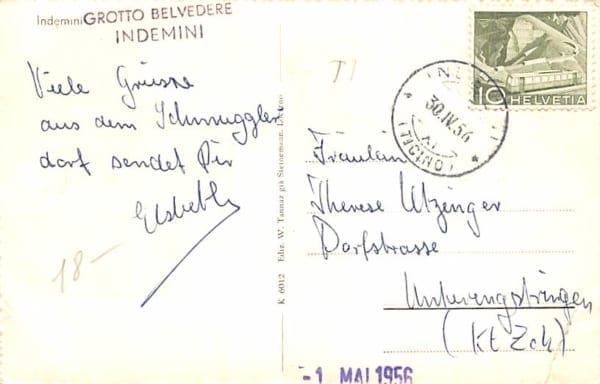 Indemini GROTTO BELVEDERE
INDEMINI
Viele Grüsse
aus dem Schmuggler
dorf sendet Dir
Elsbeth
18-
TI
K 6012 Ediz. W. Tannaz già Steinemann, Locarno
10 HELVETIA
INDEMINI
30.IV.56
(TICINO)
Fräulein
Therese Utzinger
Dorfstrasse
Unterengstringen
(Kt Zch)
-1. MAI 1956